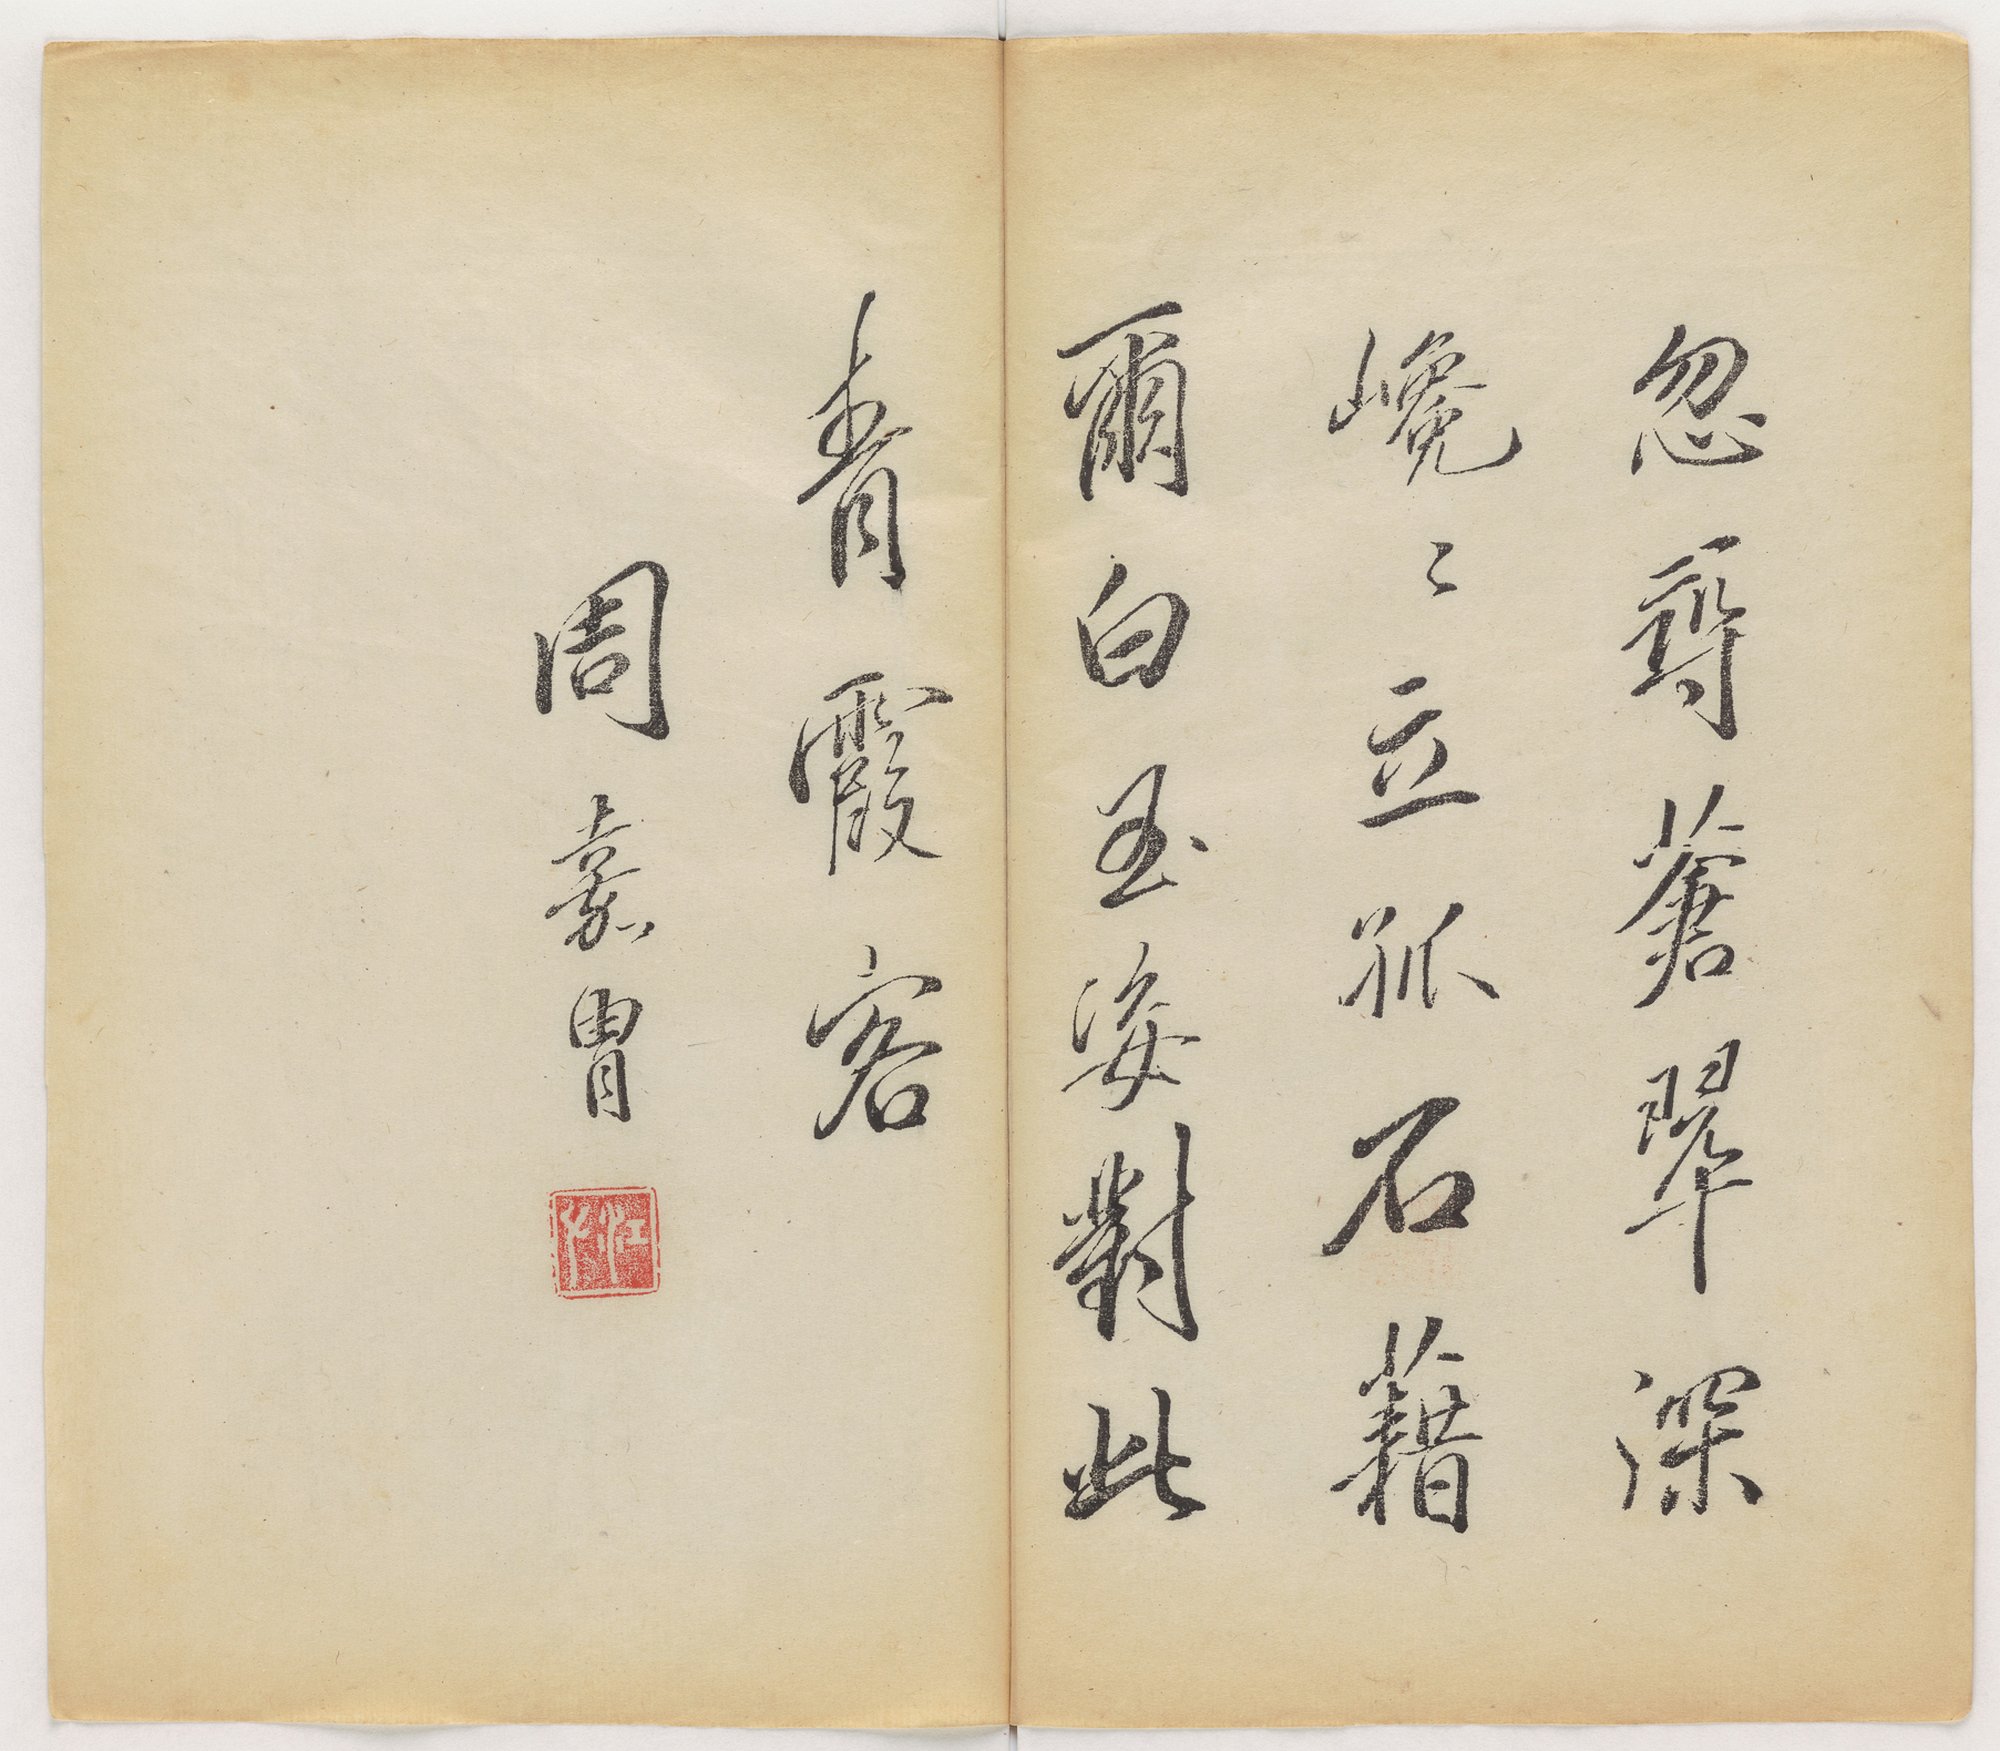 忽尋蒼翠深
巉〻立孤石藉
爾白玉姿對此
青霞客
周嘉胄
江左